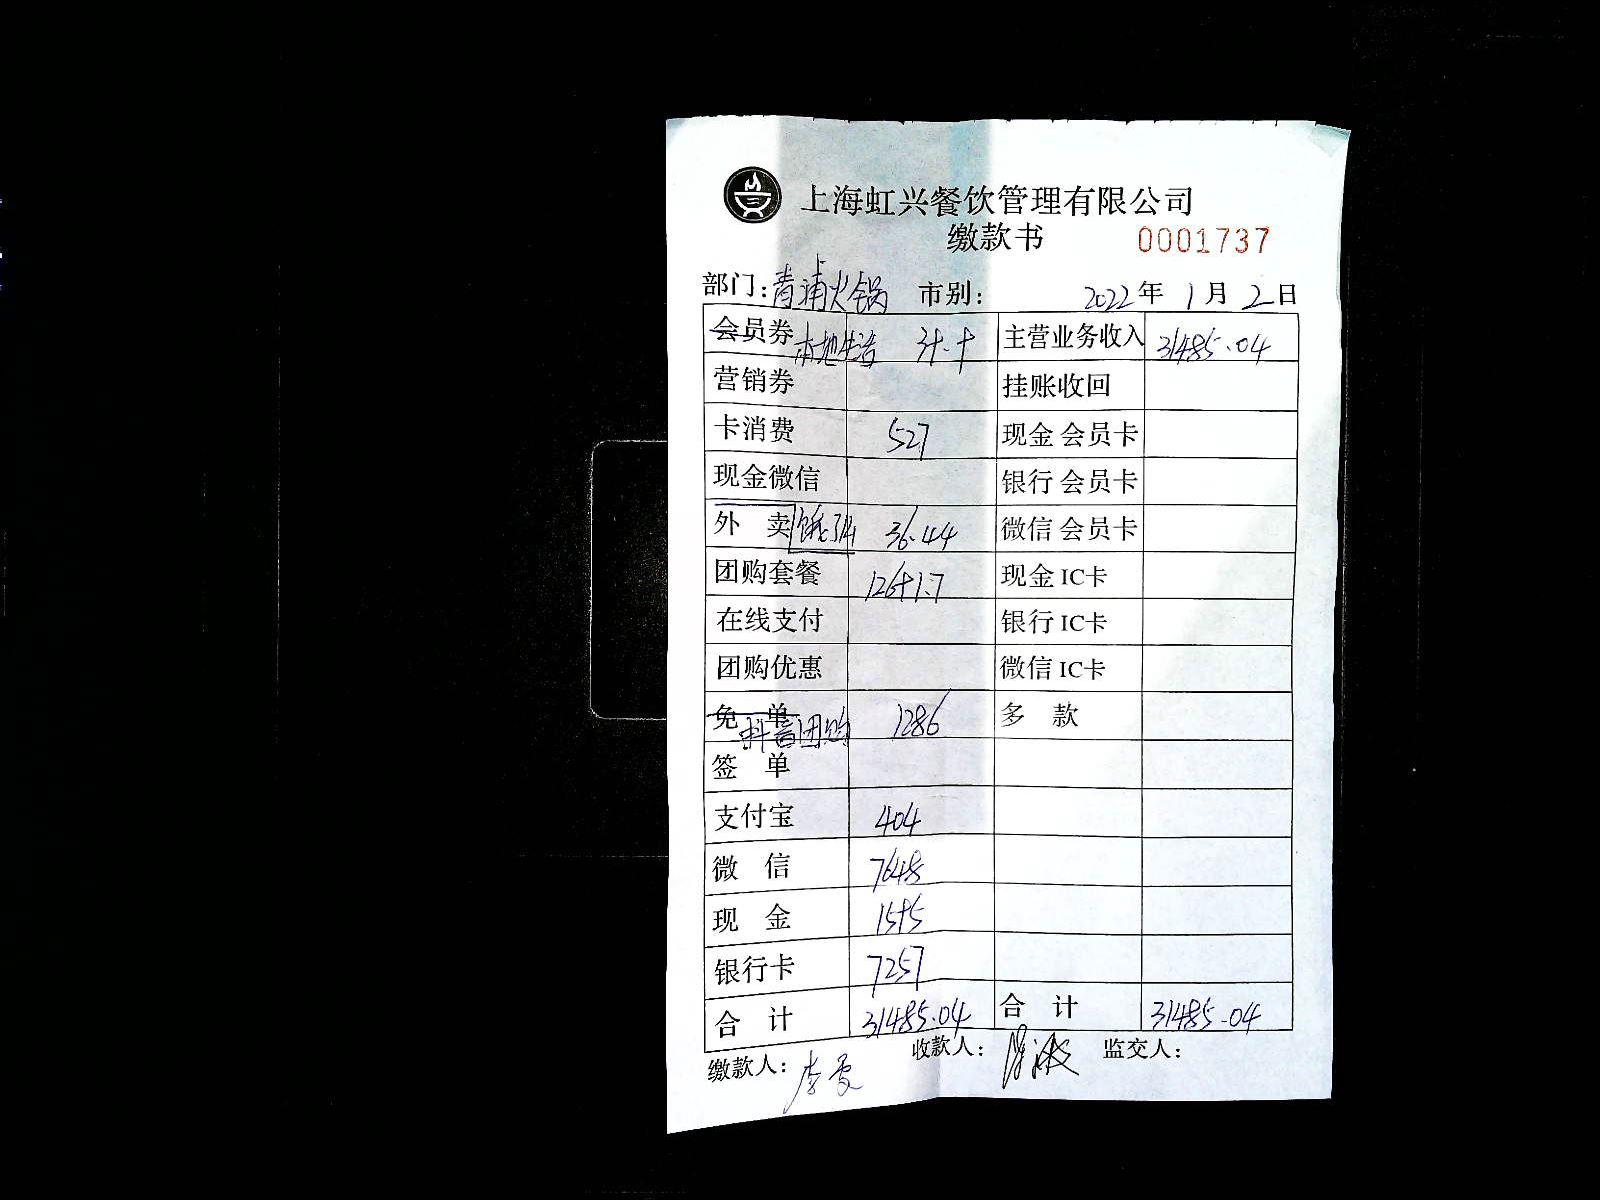 上海虹兴餐饮管理有限公司
缴款书 0001737
部门: 青浦火锅 市别: 2022年 1月 2日
会员券 本地生活 主营业务收入 31485.04
营销券 挂账收回
卡消费 527 现金 会员卡
现金微信 银行 会员卡
外 卖 饿了么 36.44 微信 会员卡
团购套餐 现金 IC卡
在线支付 银行 IC卡
团购优惠 微信 IC卡
免 单 抖音团购 1286 多 款
签 单
支付宝 404
微 信 7648
现 金 1595
银行卡 7257
合 计 31485.04 合 计 31485.04
缴款人: 收款人: 监交人: